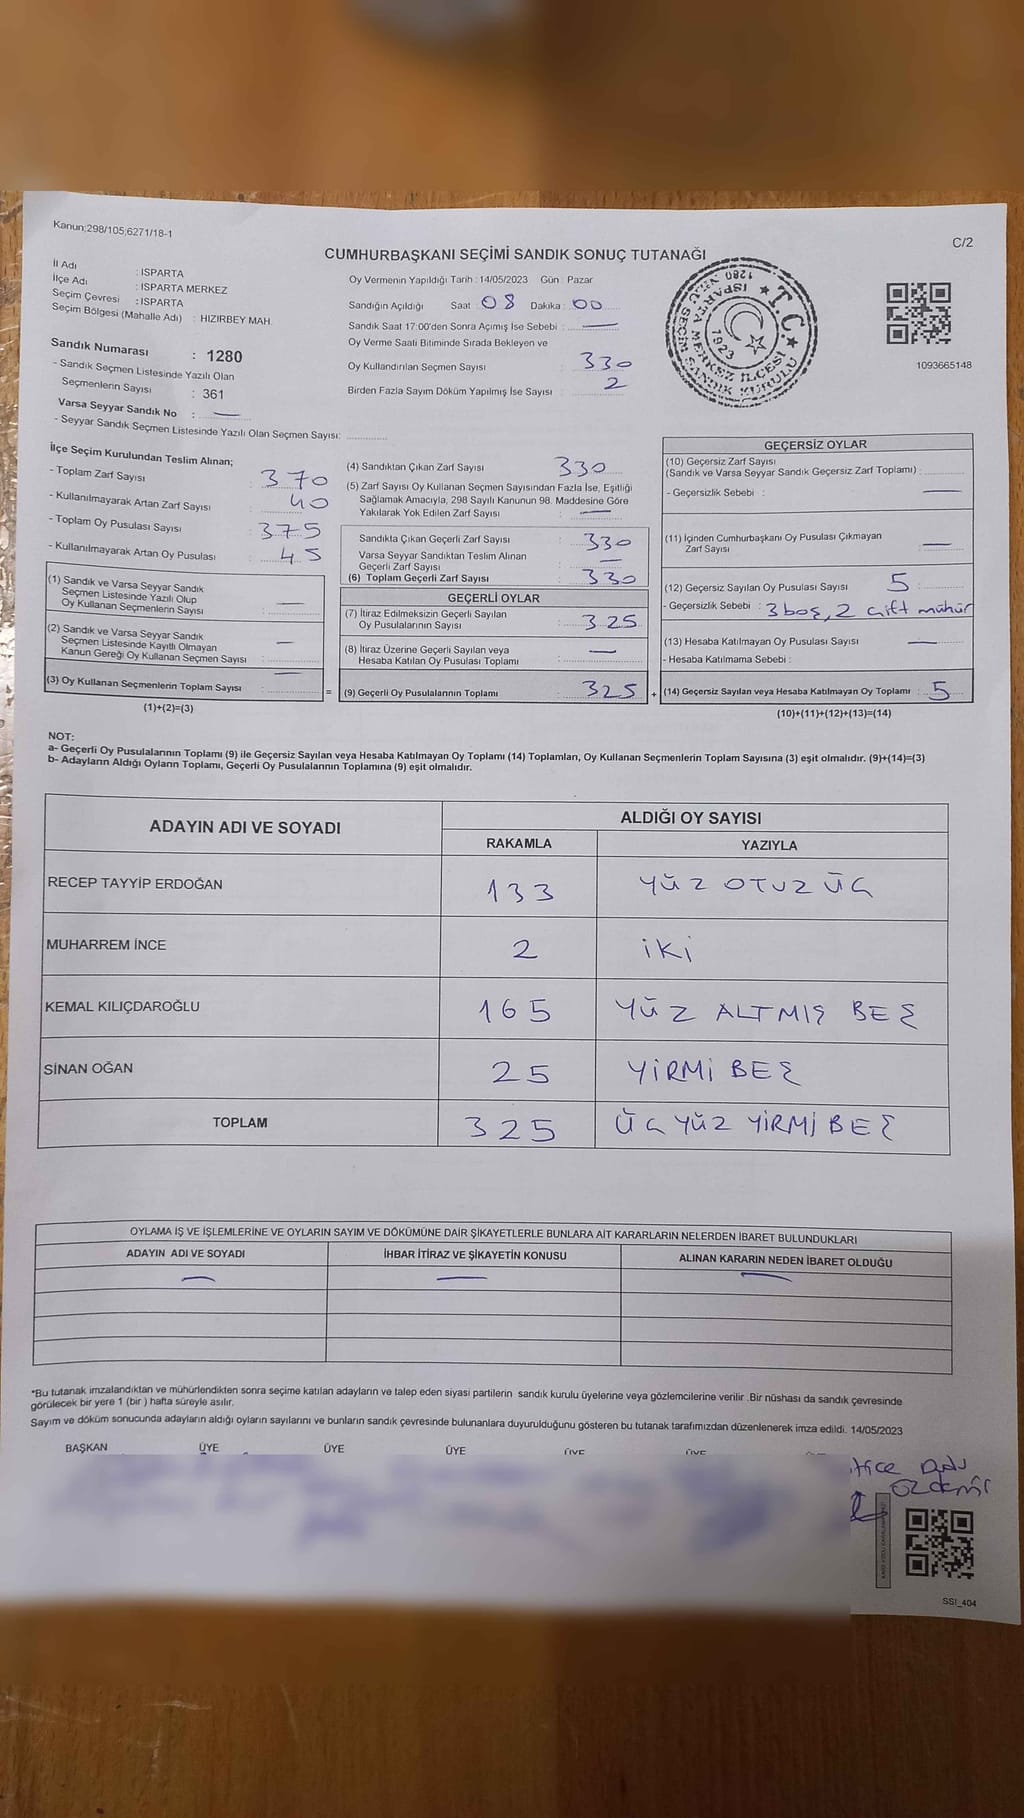 Kanun;298/105;6271/18-1
C/2
CUMHURBAŞKANI SEÇİMİ SANDIK SONUÇ TUTANAĞI
İl Adı : ISPARTA
İlçe Adı : ISPARTA MERKEZ
Seçim Çevresi : ISPARTA
Seçim Bölgesi (Mahalle Adı) : HIZIRBEY MAH.
Oy Vermenin Yapıldığı Tarih : 14/05/2023 Gün : Pazar
Sandığın Açıldığı Saat : 08 Dakika : 00
Sandık Saat 17:00'den Sonra Açımış İse Sebebi : —
Oy Verme Saati Bitiminde Sırada Bekleyen ve
Oy Kullandırılan Seçmen Sayısı : 330
Birden Fazla Sayım Döküm Yapılmış İse Sayısı : 2
T.C. ISPARTA MERKEZ İLÇESİ
SEÇİM SANDIK KURULU
ISPARTA
1280
1923
1093665148
Sandık Numarası : 1280
- Sandık Seçmen Listesinde Yazılı Olan
Seçmenlerin Sayısı : 361
Varsa Seyyar Sandık No : —
- Seyyar Sandık Seçmen Listesinde Yazılı Olan Seçmen Sayısı:
İlçe Seçim Kurulundan Teslim Alınan;
- Toplam Zarf Sayısı : 370
- Kullanılmayarak Artan Zarf Sayısı : 40
- Toplam Oy Pusulası Sayısı : 375
- Kullanılmayarak Artan Oy Pusulası : 45
(1) Sandık ve Varsa Seyyar Sandık
Seçmen Listesinde Yazılı Olup
Oy Kullanan Seçmenlerin Sayısı : —
(2) Sandık ve Varsa Seyyar Sandık
Seçmen Listesinde Kayıtlı Olmayan
Kanun Gereği Oy Kullanan Seçmen Sayısı : —
(3) Oy Kullanan Seçmenlerin Toplam Sayısı : —
(1)+(2)=(3)
(4) Sandıktan Çıkan Zarf Sayısı : 330
(5) Zarf Sayısı Oy Kullanan Seçmen Sayısından Fazla İse, Eşitliği
Sağlamak Amacıyla, 298 Sayılı Kanunun 98. Maddesine Göre
Yakılarak Yok Edilen Zarf Sayısı : —
Sandıkla Çıkan Geçerli Zarf Sayısı : 330
Varsa Seyyar Sandıktan Teslim Alınan
Geçerli Zarf Sayısı : —
(6) Toplam Geçerli Zarf Sayısı : 330
GEÇERLİ OYLAR
(7) İtiraz Edilmeksizin Geçerli Sayılan
Oy Pusulalarının Sayısı : 325
(8) İtiraz Üzerine Geçerli Sayılan veya
Hesaba Katılan Oy Pusulası Toplamı : —
= (9) Geçerli Oy Pusulalarının Toplamı : 325 +
GEÇERSİZ OYLAR
(10) Geçersiz Zarf Sayısı
(Sandık ve Varsa Seyyar Sandık Geçersiz Zarf Toplamı) :
- Geçersizlik Sebebi : —
(11) İçinden Cumhurbaşkanı Oy Pusulası Çıkmayan
Zarf Sayısı : —
(12) Geçersiz Sayılan Oy Pusulası Sayısı : 5
- Geçersizlik Sebebi : 3 boş, 2 çift mühür
(13) Hesaba Katılmayan Oy Pusulası Sayısı : —
- Hesaba Katılmama Sebebi :
(14) Geçersiz Sayılan veya Hesaba Katılmayan Oy Toplamı : 5
(10)+(11)+(12)+(13)=(14)
NOT:
a- Geçerli Oy Pusulalarının Toplamı (9) ile Geçersiz Sayılan veya Hesaba Katılmayan Oy Toplamı (14) Toplamları, Oy Kullanan Seçmenlerin Toplam Sayısına (3) eşit olmalıdır. (9)+(14)=(3)
b- Adayların Aldığı Oyların Toplamı, Geçerli Oy Pusulalarının Toplamına (9) eşit olmalıdır.
ADAYIN ADI VE SOYADI
ALDIĞI OY SAYISI
RAKAMLA YAZIYLA
RECEP TAYYİP ERDOĞAN 133 YÜZ OTUZ ÜÇ
MUHARREM İNCE 2 İKİ
KEMAL KILIÇDAROĞLU 165 YÜZ ALTMIŞ BEŞ
SİNAN OĞAN 25 YİRMİ BEŞ
TOPLAM 325 ÜÇ YÜZ YİRMİ BEŞ
OYLAMA İŞ VE İŞLEMLERİNE VE OYLARIN SAYIM VE DÖKÜMÜNE DAİR ŞİKAYETLERLE BUNLARA AİT KARARLARIN NELERDEN İBARET BULUNDUKLARI
ADAYIN ADI VE SOYADI İHBAR İTİRAZ VE ŞİKAYETİN KONUSU ALINAN KARARIN NEDEN İBARET OLDUĞU
— — —
*Bu tutanak imzalandıktan ve mühürlendikten sonra seçime katılan adayların ve talep eden siyasi partilerin sandık kurulu üyelerine veya gözlemcilerine verilir .Bir nüshası da sandık çevresinde
görülecek bir yere 1 (bir ) hafta süreyle asılır.
Sayım ve döküm sonucunda adayların aldığı oyların sayılarını ve bunların sandık çevresinde bulunanlara duyurulduğunu gösteren bu tutanak tarafımızdan düzenlenerek imza edildi. 14/05/2023
BAŞKAN ÜYE ÜYE ÜYE ÜYE ÜYE
ÖZDEMİR
SSI_404